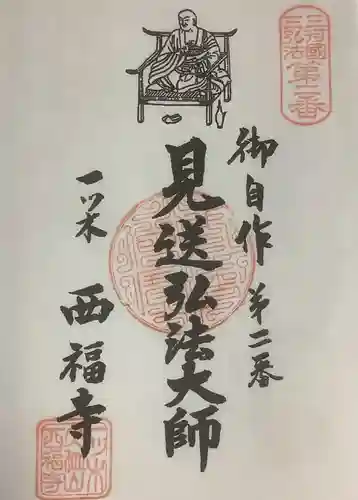 三河國
弘法
第二番
御自作 第二番
見送弘法大師
一ツ木
西福寺